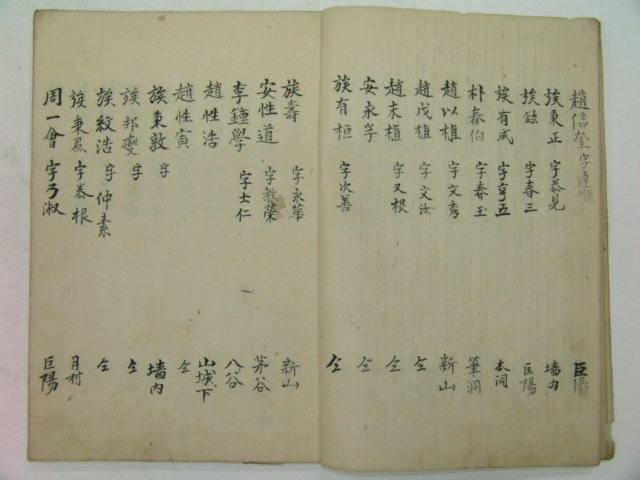 趙信奎 字達順 巨陽
族秉正 字泰見 墻內
族鉉 字春三 巨陽
族有成 字亨五 本洞
朴春伯 字春玉 筆洞
趙以植 字文秀 新山
趙戊植 字文汝 仝
趙末植 字又根 仝
安永孚 仝
族有桓 字次善 仝
族壽 字永華 新山
安性道 字敎榮 茅谷
李鍾學 字士仁 八谷
趙性浩 山城下
趙性寅 仝
族東敦 字 墻內
族邦燮 字 仝
族紋浩 字仲素 仝
族秉君 字泰根 月村
周一會 字乃淑 巨陽